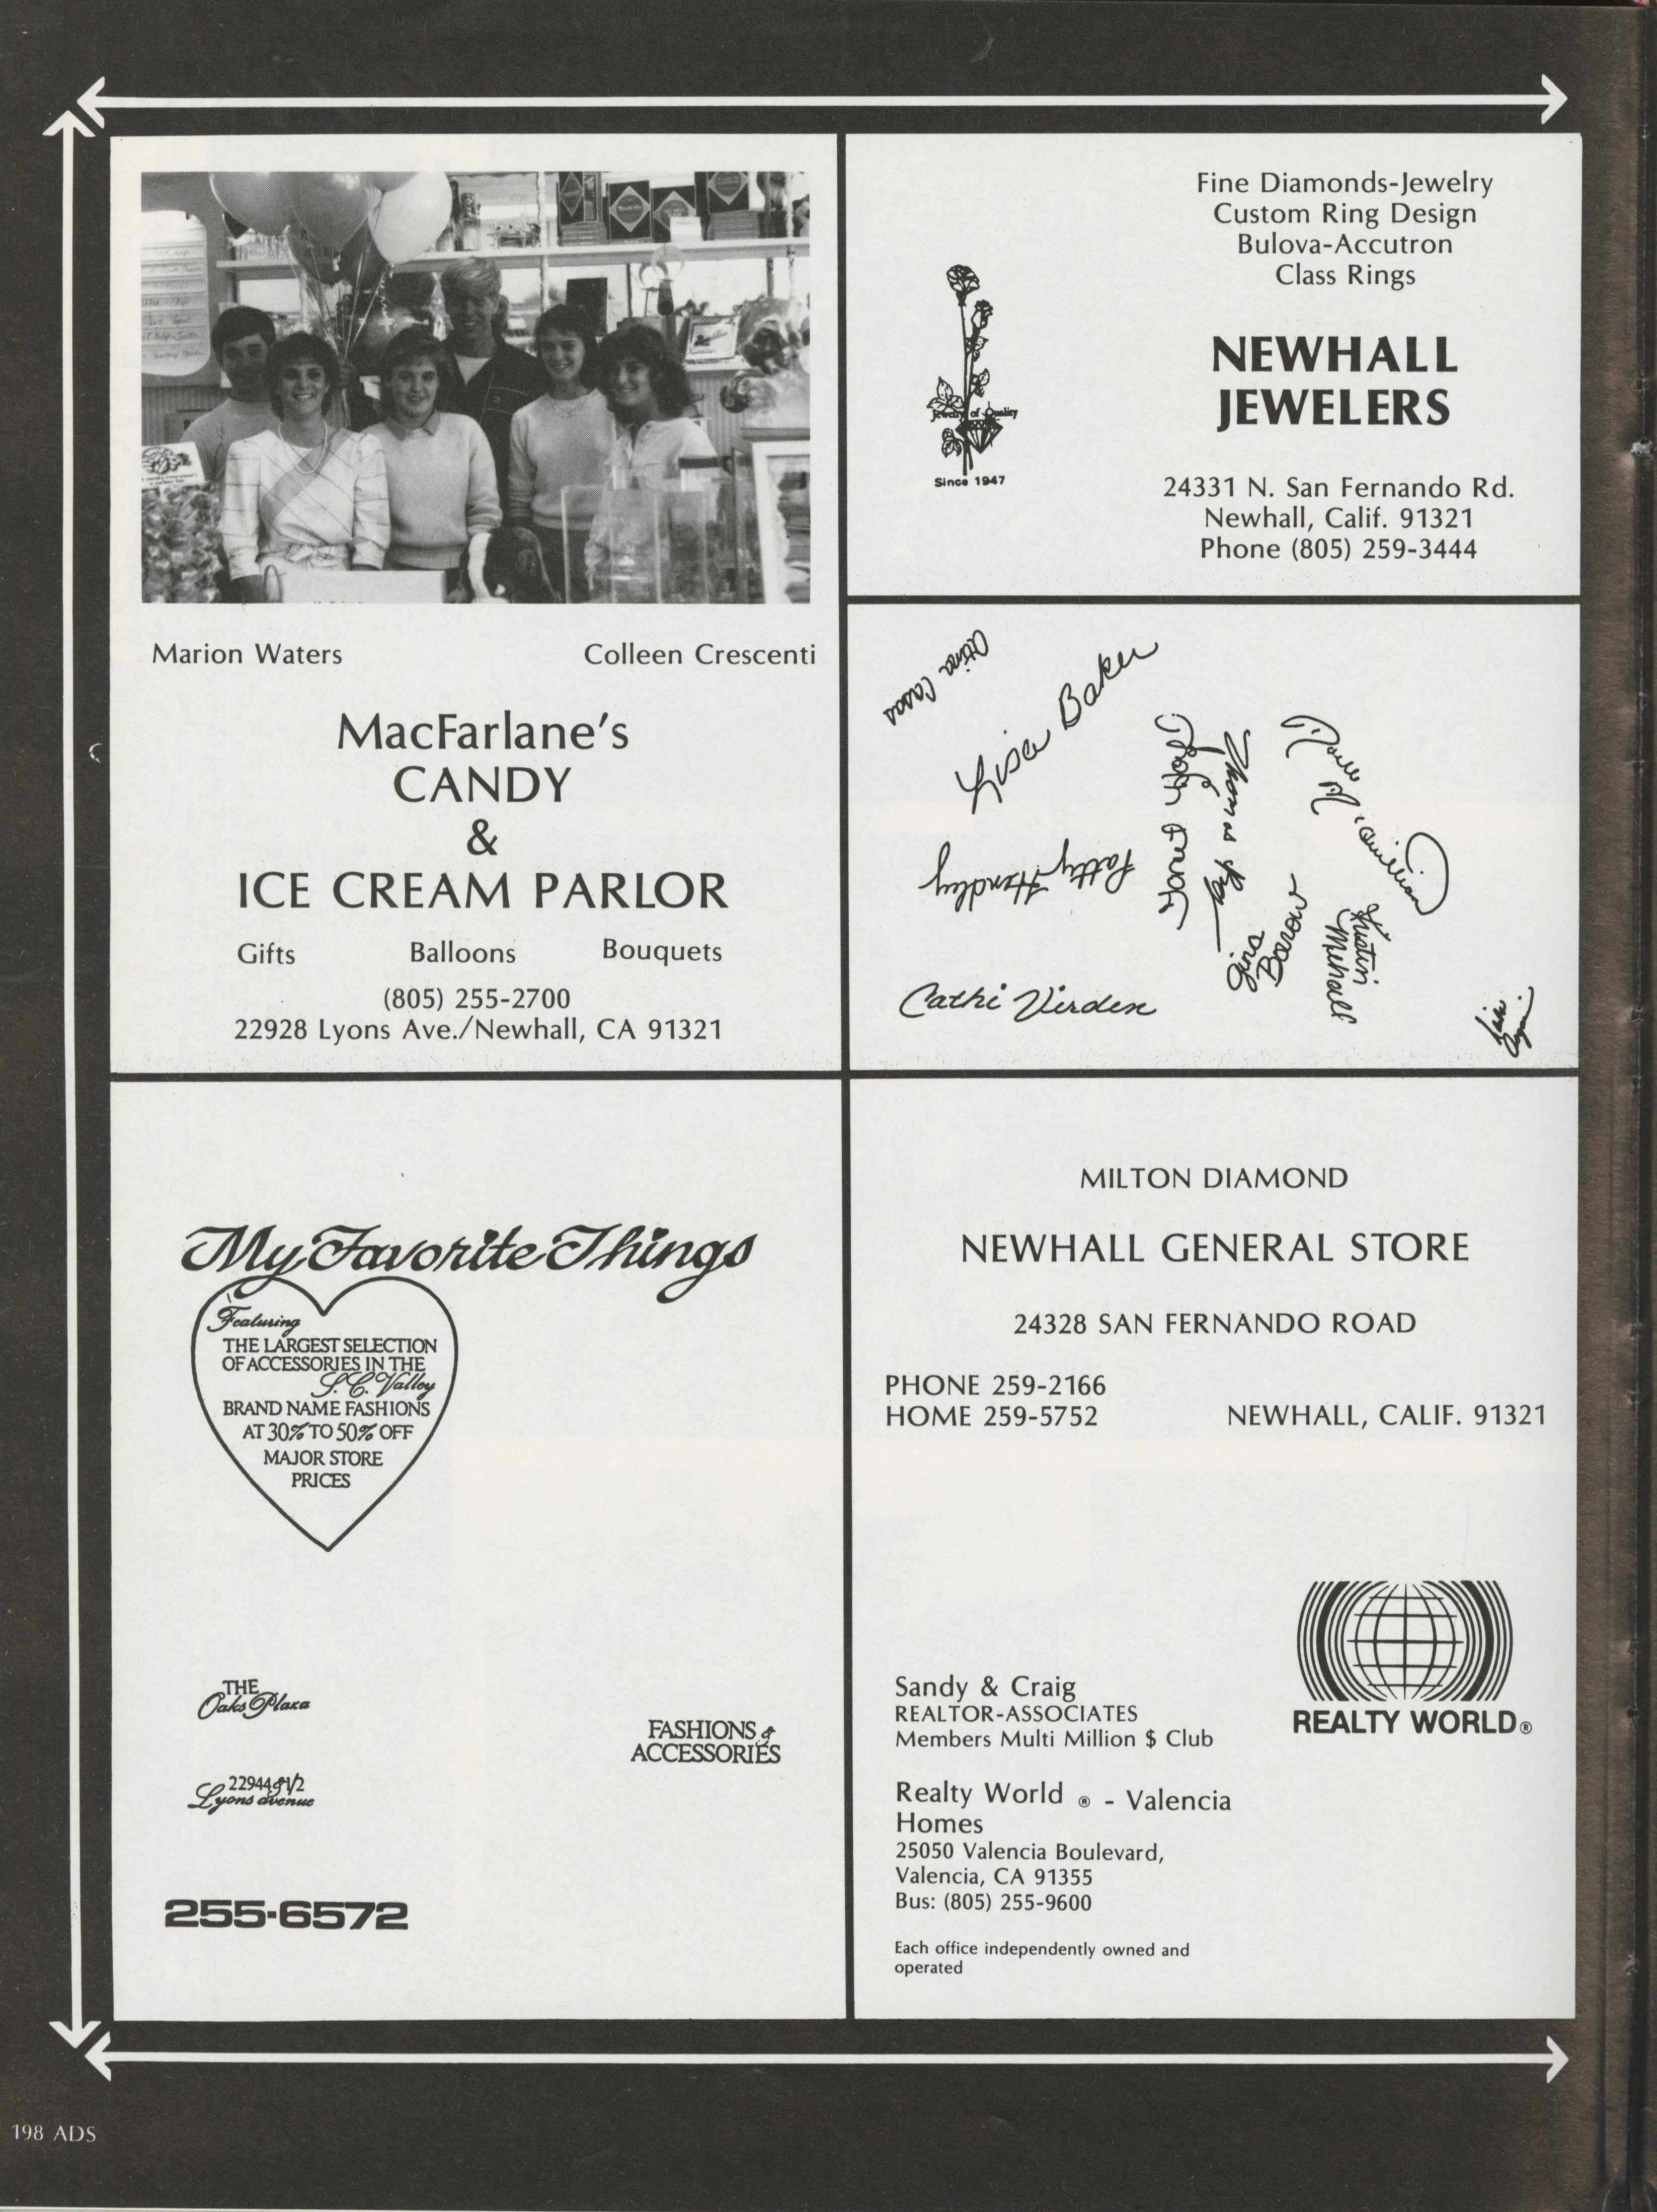 Marion Waters
Colleen Crescenti
MacFarlane's
CANDY
&
ICE CREAM PARLOR
Gifts Balloons Bouquets
(805) 255-2700
22928 Lyons Ave./Newhall, CA 91321
Fine Diamonds-Jewelry
Custom Ring Design
Bulova-Accutron
Class Rings
NEWHALL
JEWELERS
Jewelry of Quality
Since 1947
24331 N. San Fernando Rd.
Newhall, Calif. 91321
Phone (805) 259-3444
Lisa Baker
Patty Hendley
Janet
Thomas
Gina
Barrow
Kristin
Cathi Virden
My Favorite Things
Featuring
THE LARGEST SELECTION
OF ACCESSORIES IN THE
S.C. Valley
BRAND NAME FASHIONS
AT 30% TO 50% OFF
MAJOR STORE
PRICES
THE
Oaks Plaza
22944 & 1/2
Lyons avenue
FASHIONS &
ACCESSORIES
255-6572
MILTON DIAMOND
NEWHALL GENERAL STORE
24328 SAN FERNANDO ROAD
PHONE 259-2166
HOME 259-5752
NEWHALL, CALIF. 91321
REALTY WORLD®
Sandy & Craig
REALTOR-ASSOCIATES
Members Multi Million $ Club
Realty World ® - Valencia
Homes
25050 Valencia Boulevard,
Valencia, CA 91355
Bus: (805) 255-9600
Each office independently owned and
operated
198 ADS